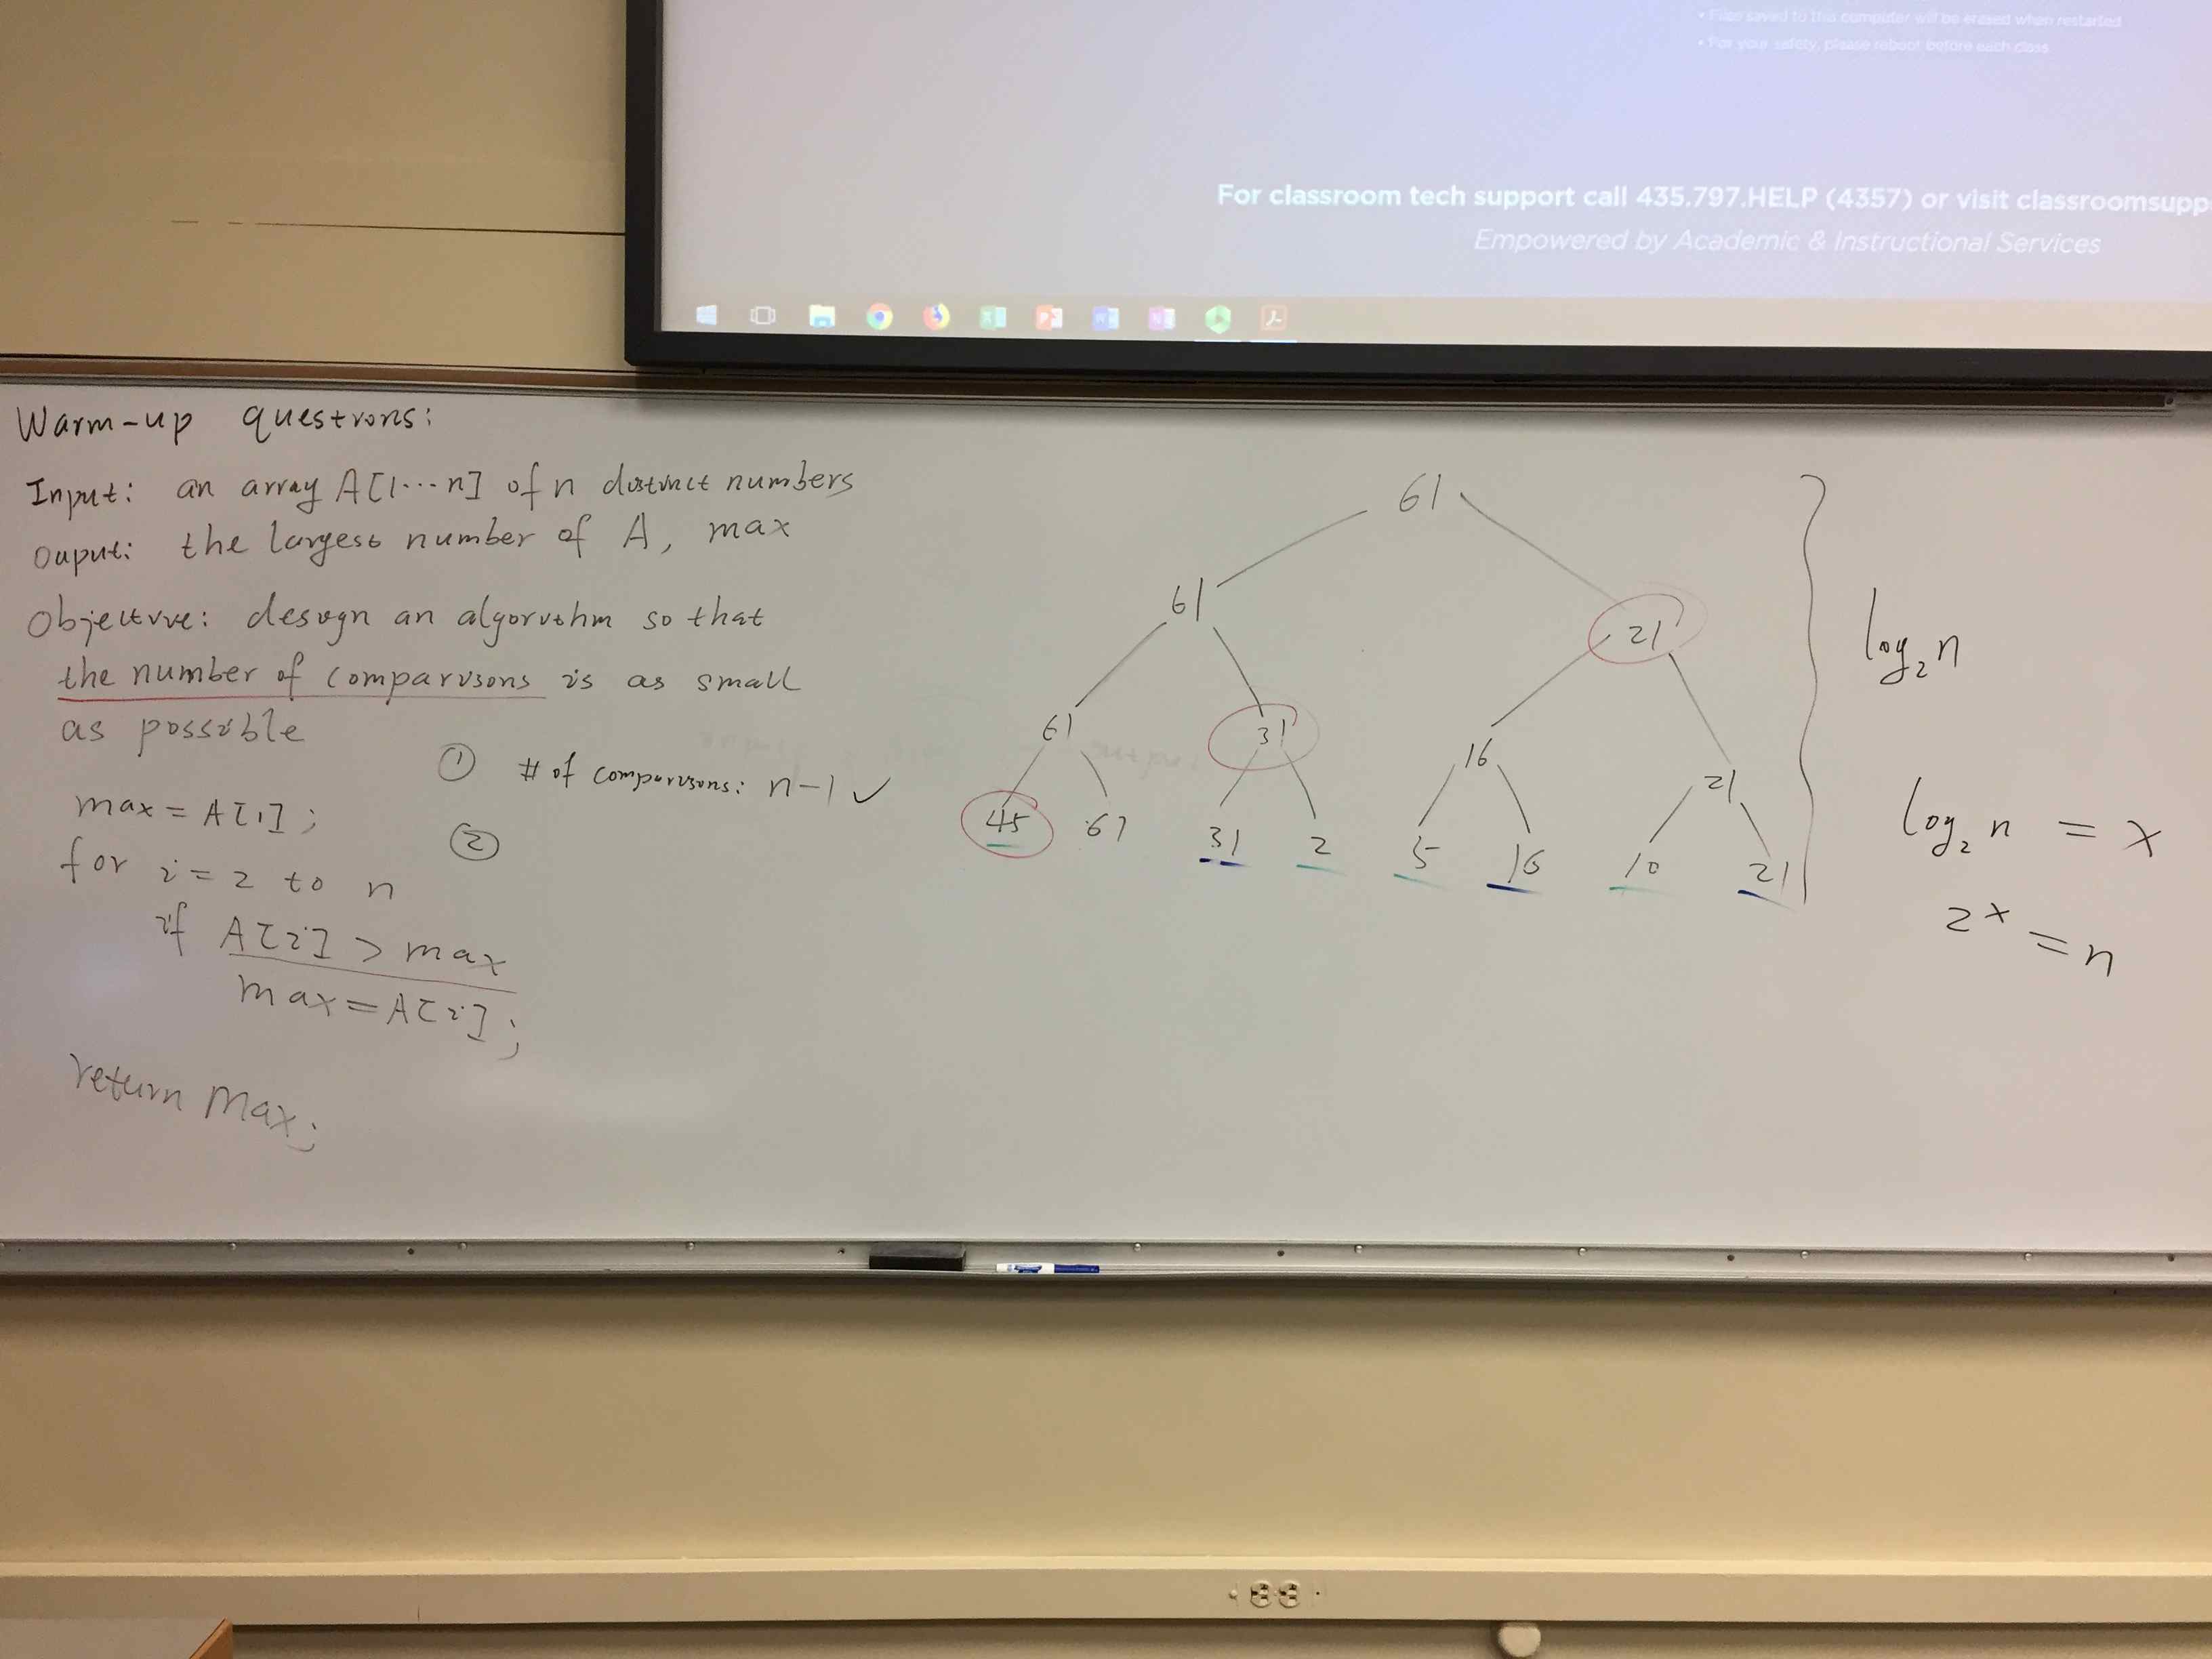 • Files saved to this computer will be erased when restarted
• For your safety, please reboot before each class
For classroom tech support call 435.797.HELP (4357) or visit classroomsupp
Empowered by Academic & Instructional Services
Warm-up questions:
Input: an array A[1···n] of n distinct numbers
Ouput: the largest number of A, max
Objective: design an algorithm so that
the number of comparisons is as small
as possible
① # of comparisons: n-1 ✓
②
max = A[1];
for i = 2 to n
if A[i] > max
max = A[i];
return max;
61
61 21
61 31 16 21
45 61 31 2 5 16 10 21
log₂n
log₂ n = x
2ˣ = n